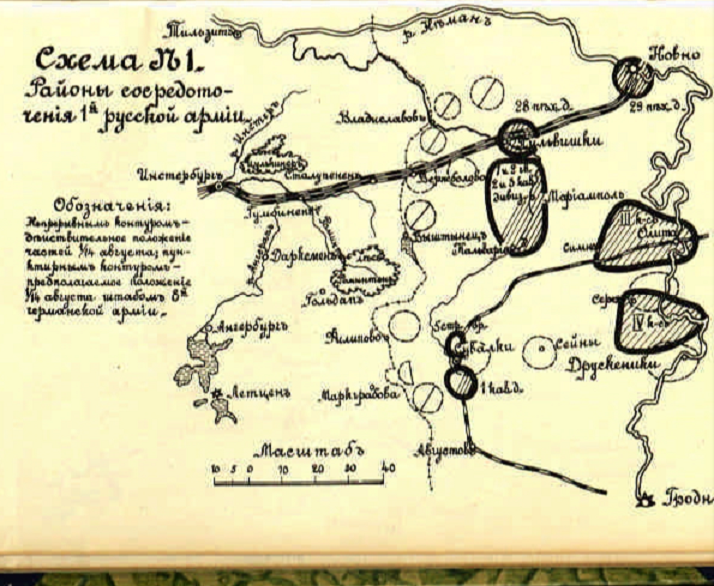 Схема №1.
Районы сосредото-
ченія 1й русской арміи
Обозначенія:
Непрерывнымъ контуромъ-
дѣйствительное положеніе
частей 1/14 августа; пун-
ктирнымъ контуромъ-
предполагаемое положеніе
1/14 августа штабомъ 8й
германской арміи.
Тильзитъ
р. Нѣманъ
Ковно
Владиславовъ
28 пѣх. д.
29 пѣх. д.
р. Инстеръ
Вильвишки
Инстербургъ
Сталупененъ
Вержболово
1 и 2 гв.
2 и 3 кав.
дивиз.
Маріамполь
Гумбиненъ
Выштынецъ
Кальварія
III к-съ
Олита
Симно
Даркеменъ
р. Ангерапъ
Гольдапъ
Ангербургъ
Филипово
Сувалки
Сейны
IV к-съ
Друскеники
Летценъ
Маркграбова
1 кав. д.
Августовъ
Масштабъ
10 5 0 10 20 30 40
Гродн